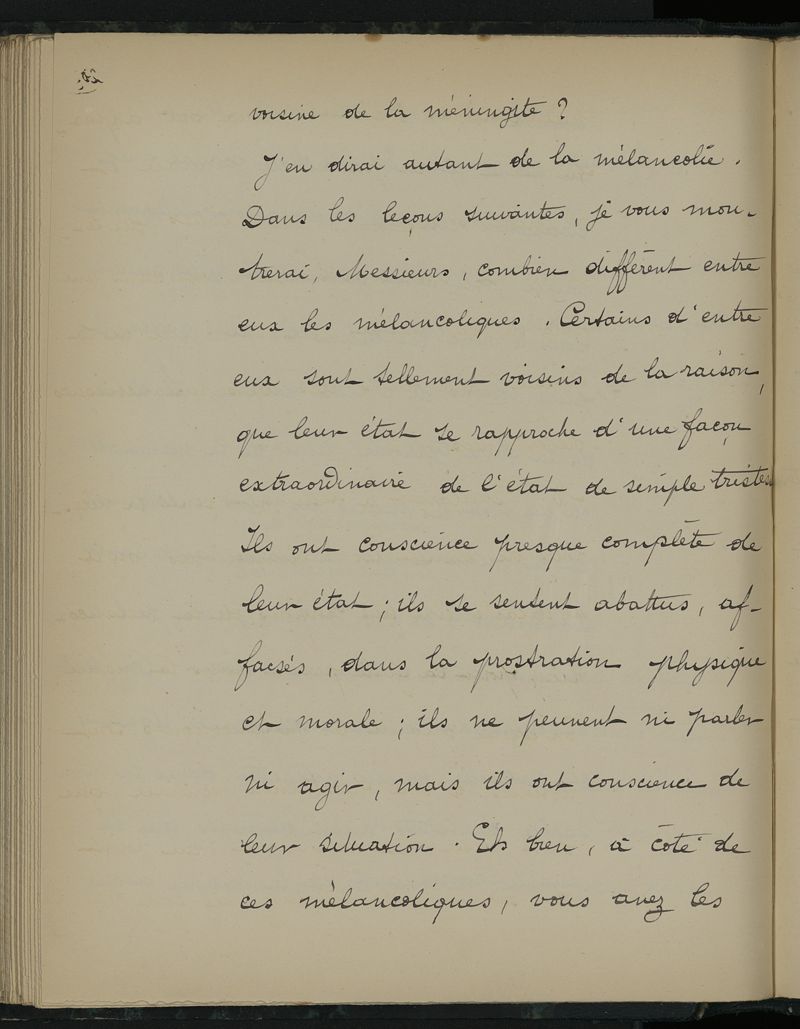 voisine de la méningite ?
J'en dirai autant de la mélancolie.
Dans les leçons suivantes, je vous mon-
trerai, Messieurs, combien diffèrent entre
eux les mélancoliques. Certains d'entre
eux sont tellement voisins de la raison,
que leur état se rapproche d'une façon
extraordinaire de l'état de simple tristes
Ils ont conscience presque complète de
leur état ; ils se sentent abattus, af-
faisés, dans la prostration physique
et morale ; ils ne peuvent ni parler
ni agir, mais ils ont conscience de
leur situation. Eh bien, à côté de
ces mélancoliques, vous avez les